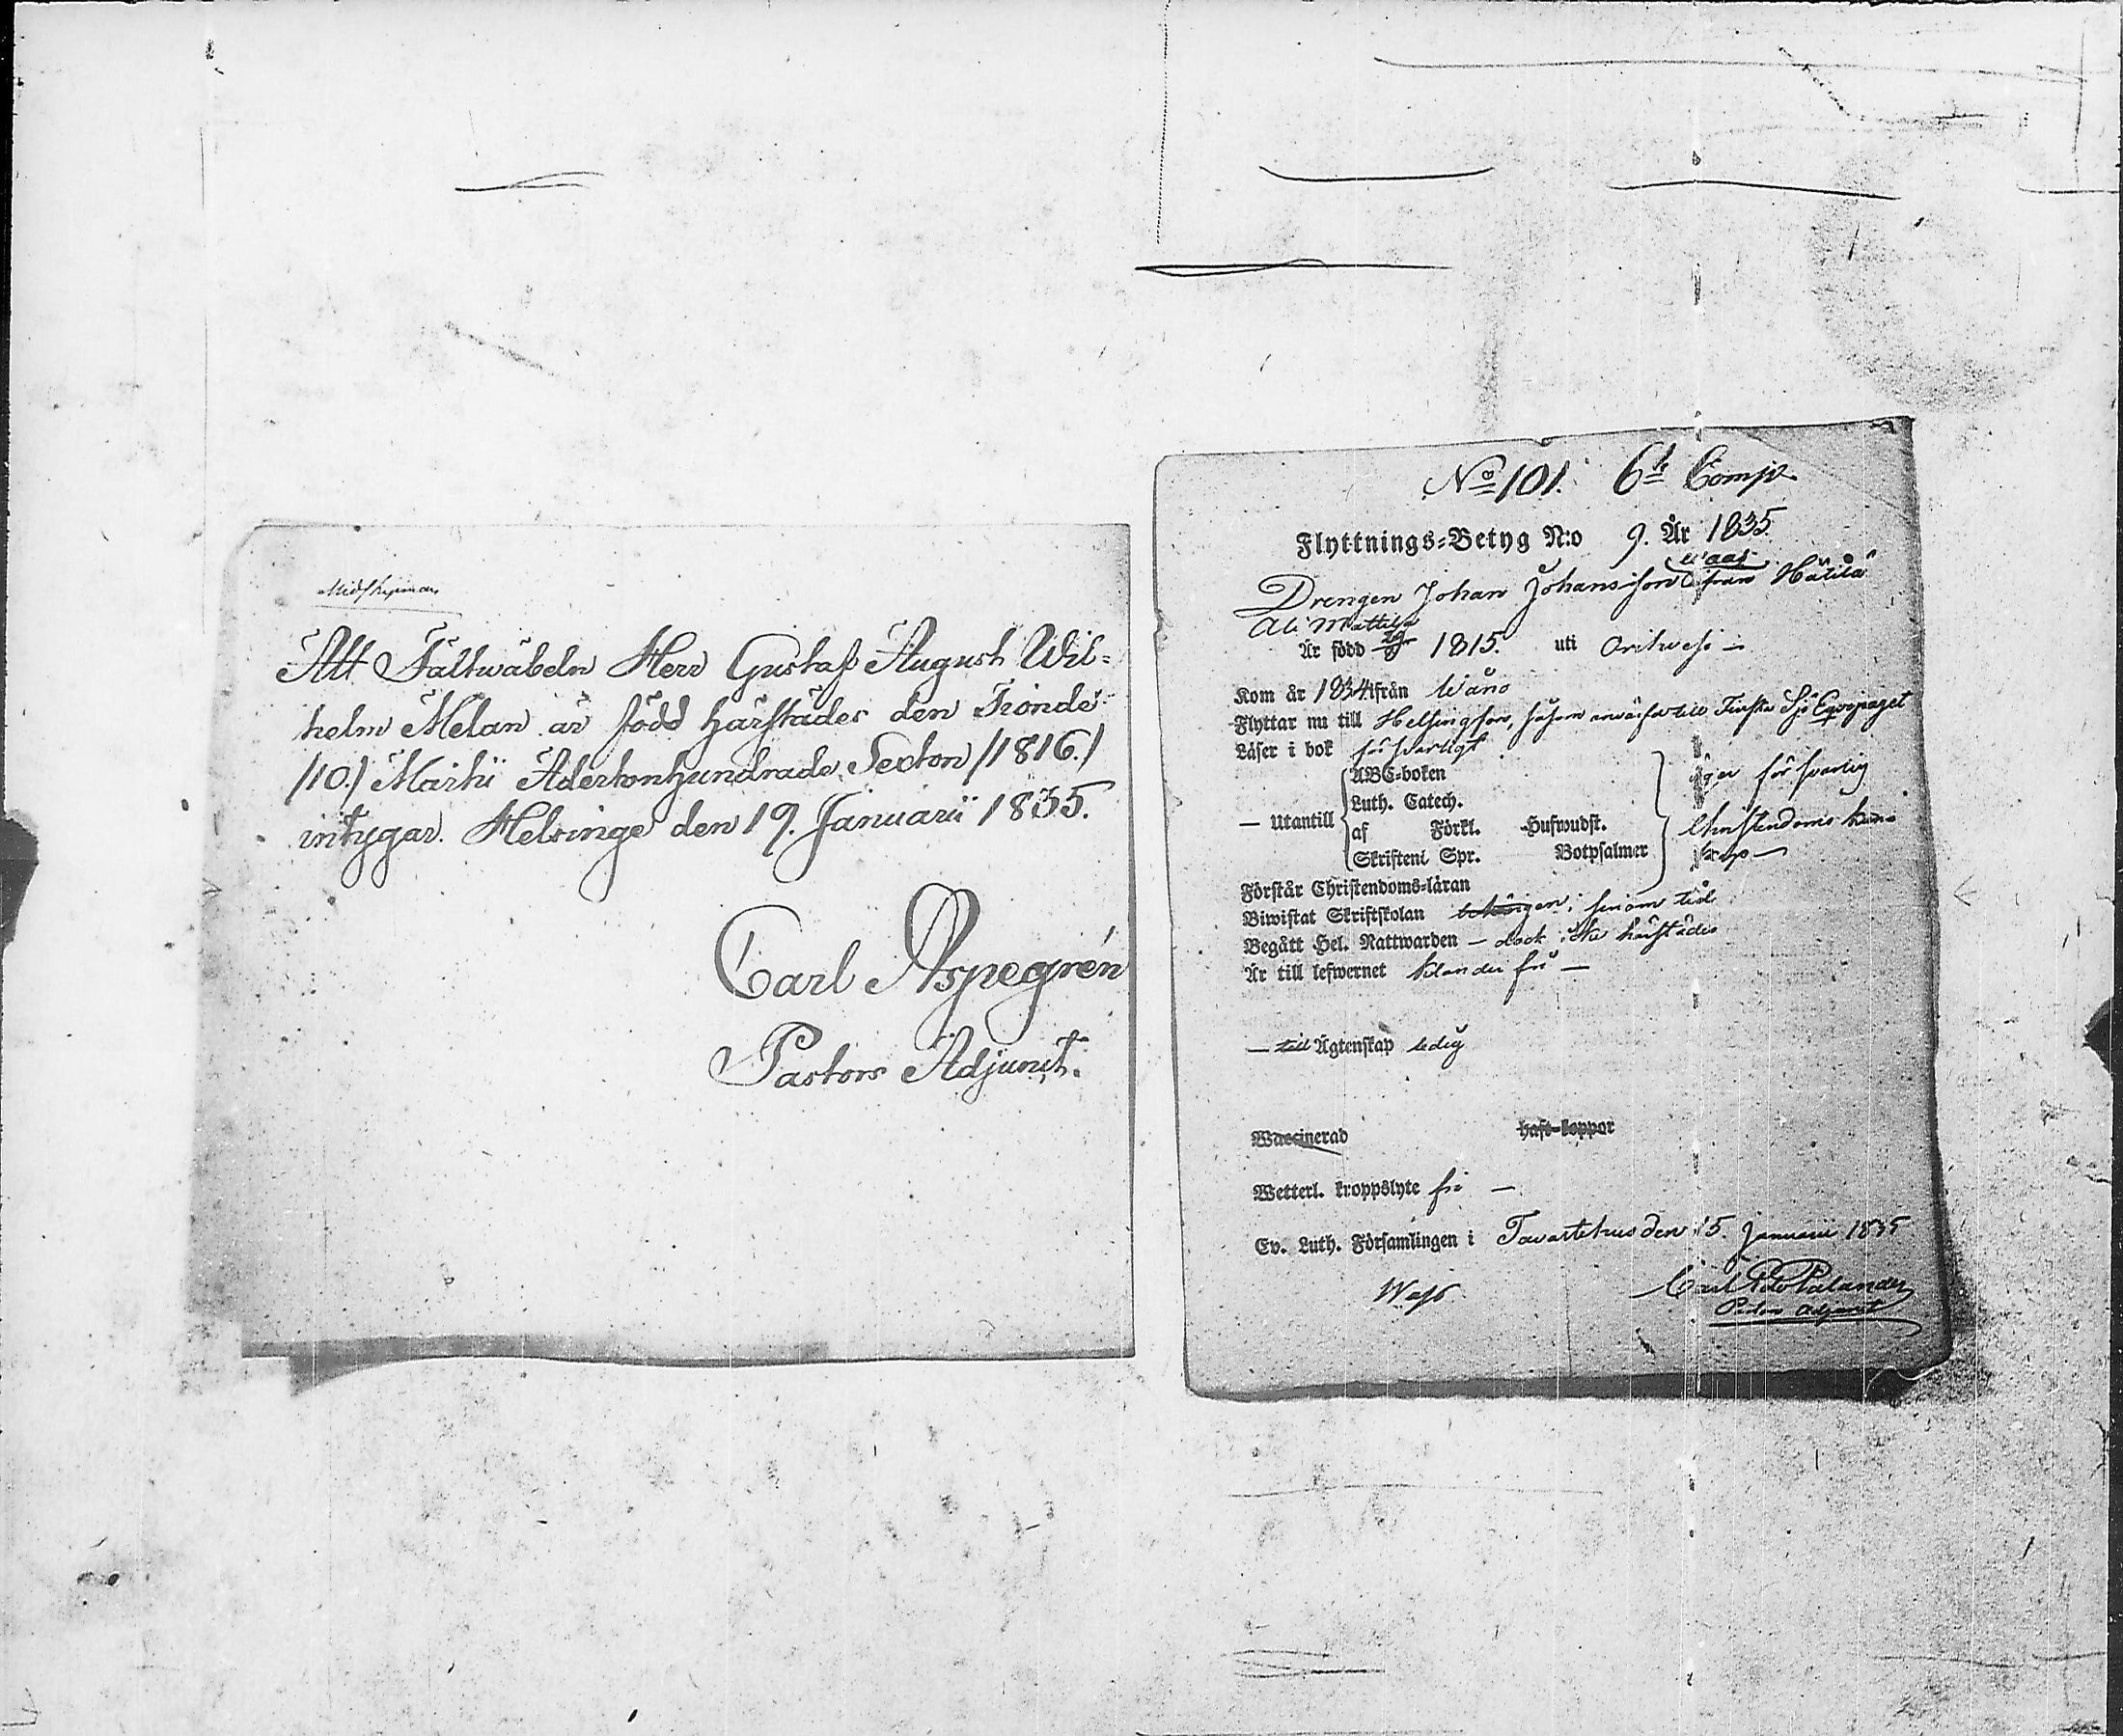 Midshipman
Att Fältwäbeln Herr Gustaf August Wil=
helm Melan är född härstädes den Tionde
/10./ Martii Adertonhundrade Sexton /1816./
intygar. Helsinge den 19. Januarii 1835.
Carl Aspegrén
Pastors Adjunct.
No 101. 6te Comp.
Flyttnings=Betyg N:o 9. År 1835.
Drengen Johan Johansson från Hätilä
Ali Mattila
Är född 1815. uti
Kom år 1834 ifrån Wånå
Flyttar nu till Helsingfors, såsom antagen till Finska Sjö Equipaget
Läser i bok försvarligt
ABC=boken
Luth. Catech.
— Utantill af Förkl. Hufwudst.
Skriftenl Spr. Botpsalmer
äger försvarlig
Christendoms kun=
skap —
Förstår Christendoms=läran
Biwistat Skriftskolan behörigen i sinom tid
Begått Hel. Nattwarden — dock icke härstädes
Är till lefwernet klander fri —
— till Ägtenskap ledig
Waccinerad haft koppor
Wetterl. kroppslyte fri —
Ev. Luth. Församlingen i Tavastehus den 15. Januarii 1835
Carl Palander
Pastors Adjunct